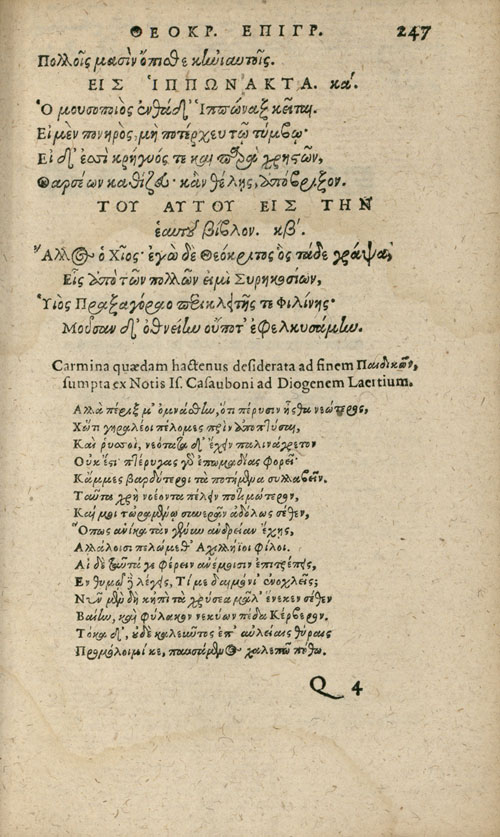 ΘΕΟΚΡ. ΕΠΙΓΡ. 247
Πολλοῖς μασὶν ὄπιθε κἠν αὐτοῖς.
ΕΙΣ ἹΠΠΩΝΑΚΤΑ. κα΄.
Ὁ μουσοποιὸς ἐνθάδ' Ἱππώναξ κεῖται.
Εἰ μὲν πονηρὸς, μὴ ποτέρχευ τῷ τύμβῳ·
Εἰ δ' ἐσσὶ κρήγυός τε καὶ παρὰ χρηστῶν,
Θαρσέων καθίζευ· κἂν θέλης, ἀπόβριξον.
ΤΟΥ ΑΥΤΟΥ ΕΙΣ ΤΗΝ
ἑαυτοῦ βίβλον. κβ΄.
Ἄλλος ὁ Χῖος· ἐγὼ δὲ Θεόκριτος ὃς τάδε γράψα,
Εἷς ἀπὸ τῶν πολλῶν εἰμὶ Συρηκοσίων,
Ὑιὸς Πραξαγόραο περικλειτῆς τε Φιλίνης·
Μοῦσαν δ' ὀθνείην οὔποτ' ἐφελκυσάμην.
Carmina quædam hactenus desiderata ad finem Παιδικῶν,
sumpta ex Notis Is. Casauboni ad Diogenem Laertium.
Ἀλλὰ πέριξ μ' ὀμνάσθην, ὅτι πέρυσιν ἦσθα νεώτερος,
Χὤτι γηραλέοι πέλομες πρὶν ἀποπτύσαι,
Καὶ ῥυσσοί, νεότατα δ' ἔχειν παλινάγρετον
Οὐκ ἔστι· πτέρυγας γὸ ἐπωμαδίας φορεῖ·
Κἄμμες βαρδύτεροι τὰ ποτήμενα συλλαβεῖν.
Ταῦτα χρὴ νοέοντα πέλειν ποτιμώτερον,
Καί μοι τὠραμένῳ συνερᾶν ἀδόλως σέθεν,
Ὅπως ἀνίκα τὰν γένυν ἀνδρείαν ἔχης,
Ἀλλάλοισι πελώμεθ' Ἀχιλλήϊοι φίλοι.
Αἰ δὲ ταῦτά γε φέρειν ἀνέμοισιν ἐπιτρέπης,
Ἐν θυμῷ δὲ λέγης, Τί με δαιμόνι' ἐνοχλεῖς;
Νῦν μὲν δὴ κἠπὶ τὰ χρύσεα μᾶλ' ἕνεκεν σέθεν
Βαίην, καὶ φύλακον νεκύων πέδα Κέρβερον.
Τόκα δ', οὐδὲ καλεῦντος ἐπ' αὐλείαις θύραις
Προμόλοιμί κε, παυσάμενος χαλεπῶ πόθω.
Q 4